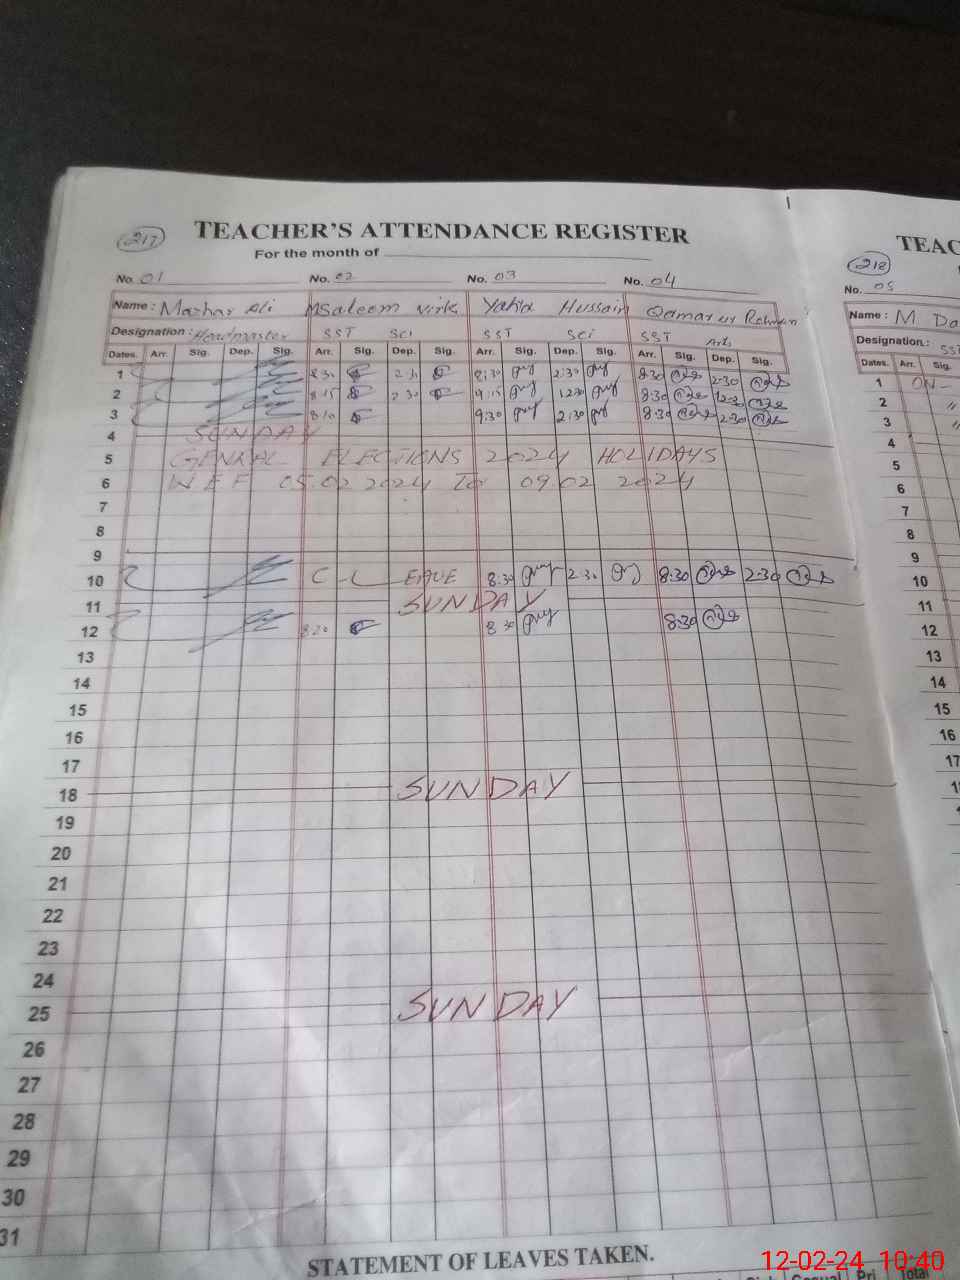 217
TEACHER'S ATTENDANCE REGISTER
For the month of
No. 01 No. 02 No. 03 No. 04
Name: Mazhar Ali MSaleem Virk Yahia Hussain Qamar ur Rehman
Designation: Headmaster SST Sci SST Sci SST Arts
Dates. Arr. Sig. Dep. Sig. Arr. Sig. Dep. Sig. Arr. Sig. Dep. Sig. Arr. Sig. Dep. Sig.
1 8:30 2:30 8:30 2:30 8:30 2:30
2 8:15 2:30 9:15 12:30 8:30 12:30
3 8:10 9:30 2:30 8:30 2:30
4 SUNDAY
5 GENRAL ELECTIONS 2024 HOLIDAYS
6 W E F 05.02.2024 To 09.02 2024
7
8
9
10 C-L EAVE 8:30 2:30 8:30 2:30
11 SUNDAY
12 8:20 8:30 8:30
13
14
15
16
17
18 SUNDAY
19
20
21
22
23
24
25 SUNDAY
26
27
28
29
30
31
STATEMENT OF LEAVES TAKEN.
Total
218
TEAC
No. 05
Name: M
Designation: SST
Dates. Arr. Sig.
1 ON-
2 "
3 "
4
5
6
7
8
9
10
11
12
13
14
15
16
17
12-02-24 10:40